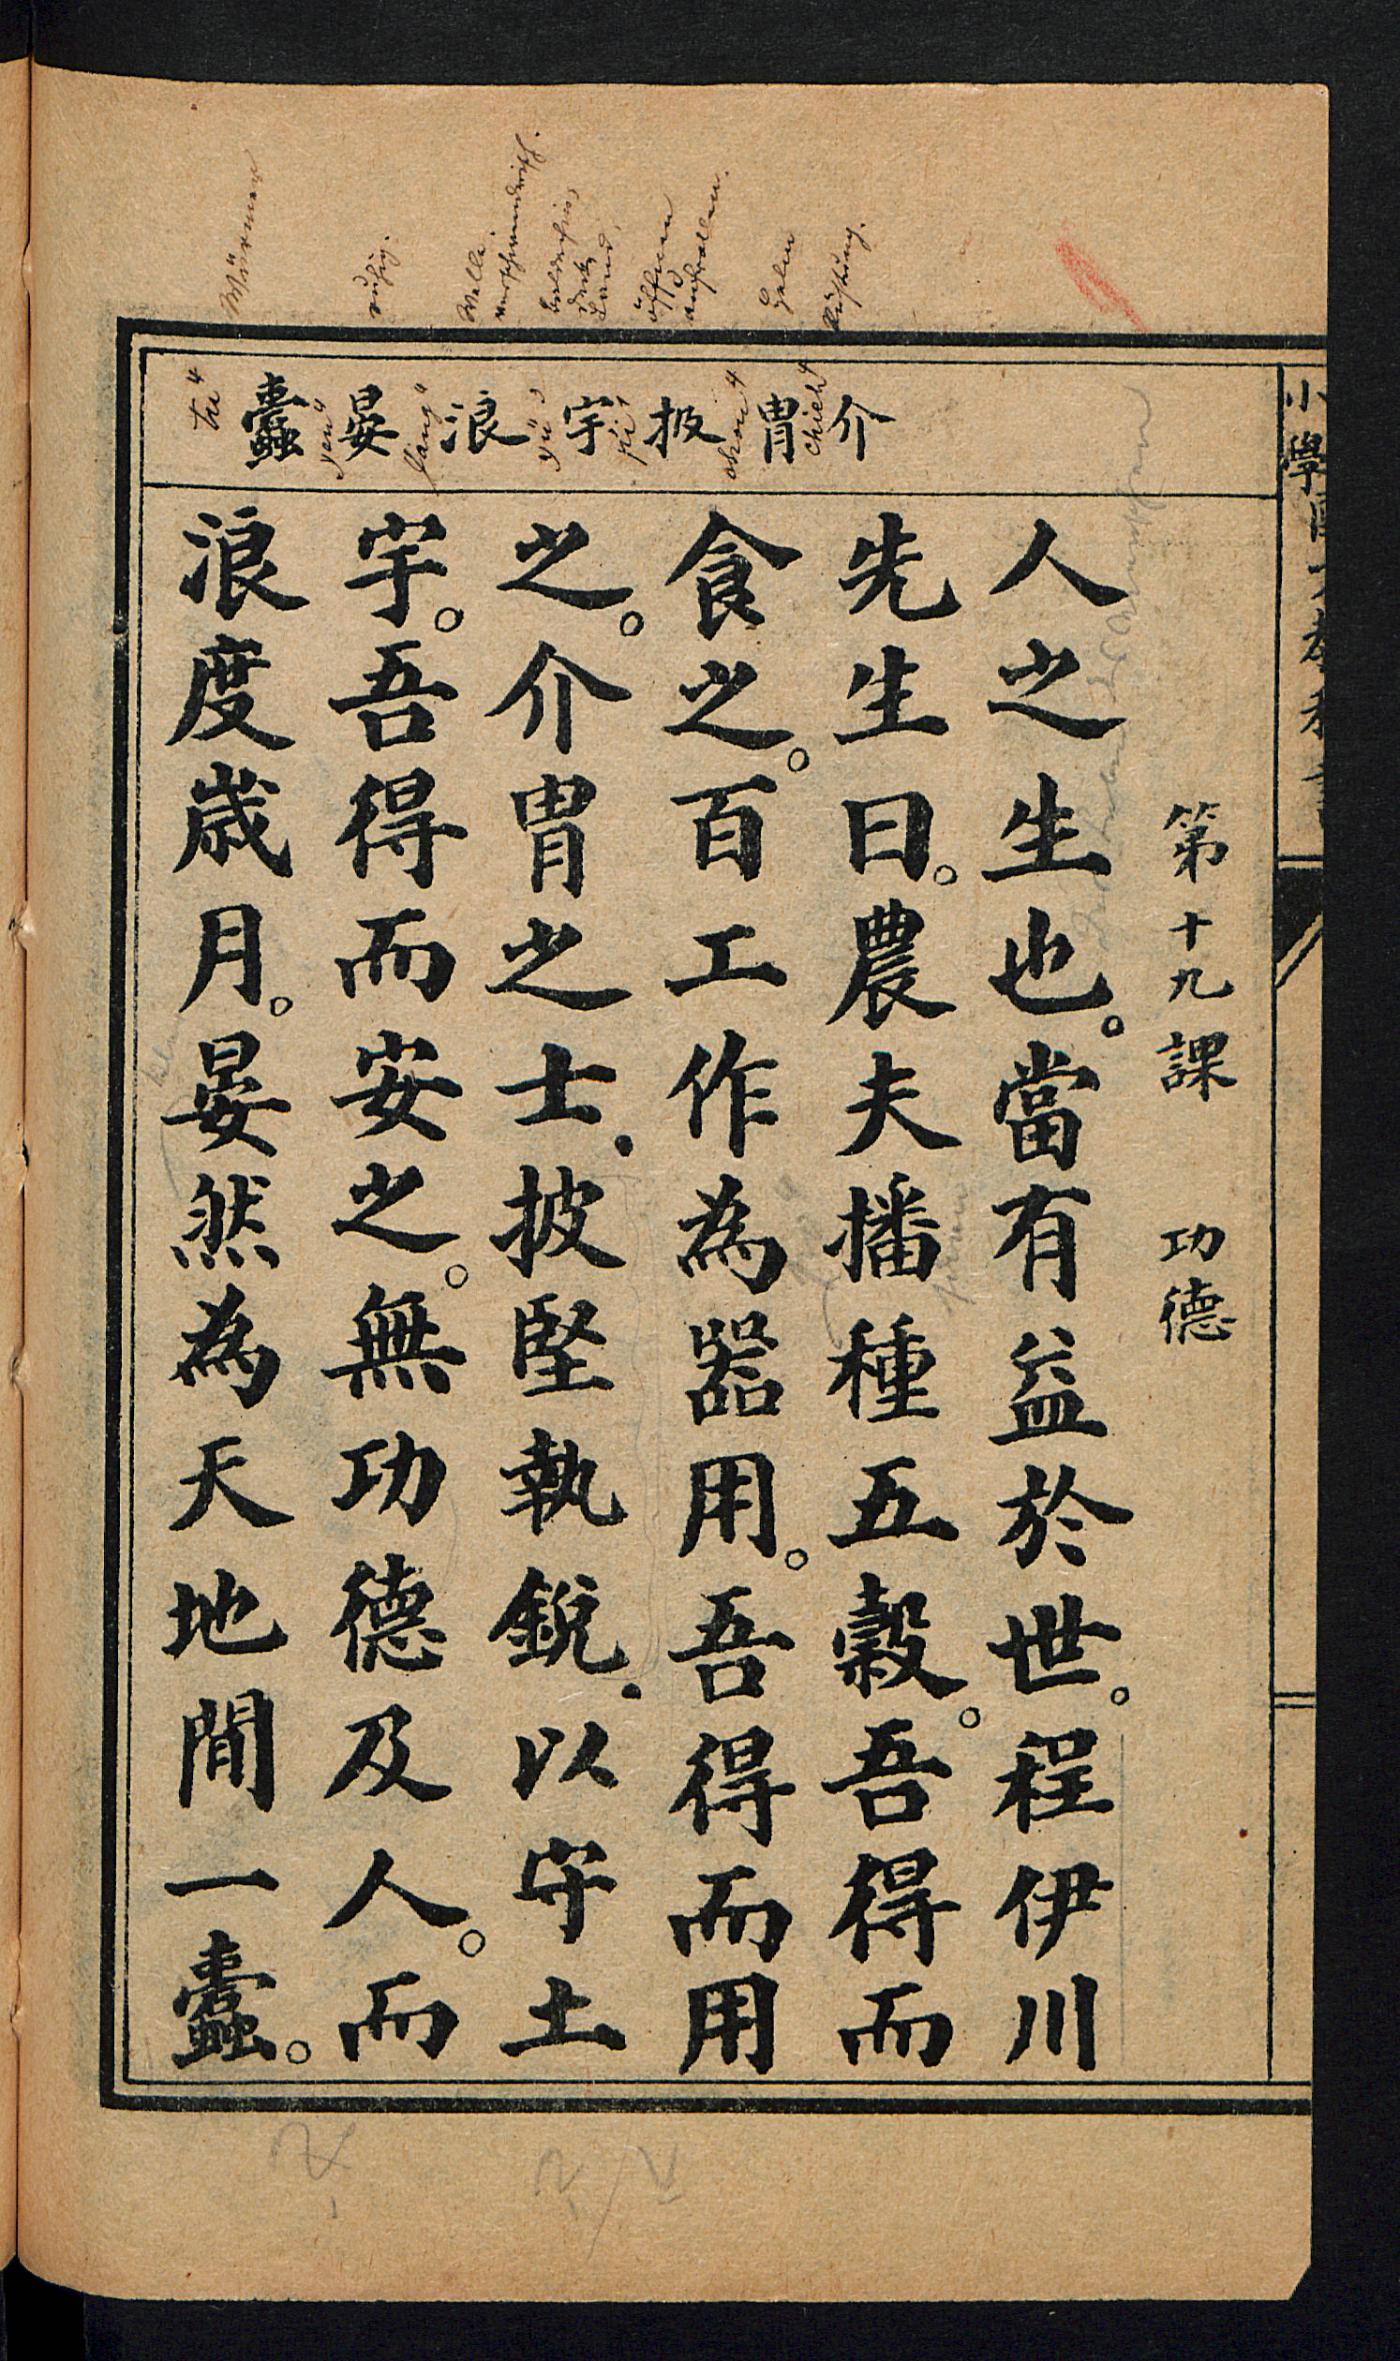 第十九課 功德
人之生也。當有益於世。程伊川
先生曰。農夫播種五穀。吾得而
食之。百工作為器用。吾得而用
之。介冑之士.披堅執銳.以守土
宇。吾得而安之。無功德及人。而
浪度歲月。晏然為天地間一蠹。
介 冑 披 宇 浪 晏 蠹
chieh⁴
yü³
lang⁴
yen⁴
tu⁴
Rüstung.
Helm
öffnen
Welle
ruhig.
Würmer